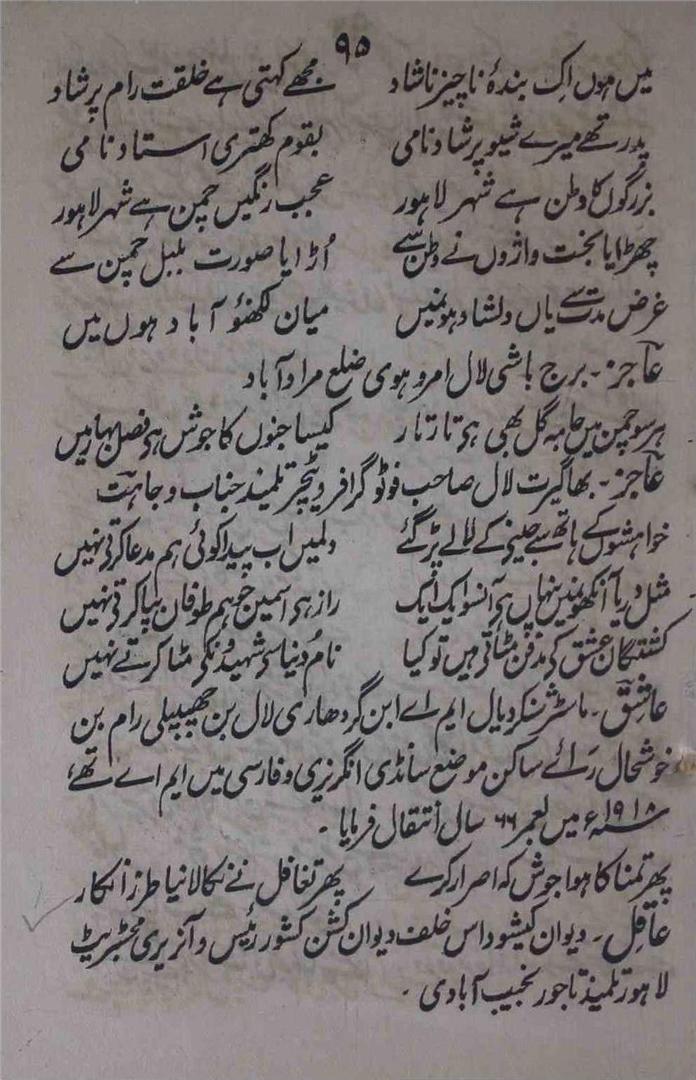 ۹۵
میں ہوں اِک بندۂ ناچیز ناشاد مجھے کہتی ہے خلقت رام پرشاد
پدر تھے میرے شیو پرشاد نامی بقوم کھتری استاد نامی
بزرگوں کا وطن ہے شہر لاہور عجب رنگیں چمن ہے شہر لاہور
چھڑایا بخت واژوں نے وطن سے اُڑایا صورت بلبل چمن سے
غرض مدت سے یاں دلشاد ہوں میں میان لکھنؤ آباد ہوں میں
عاجز۔ برج باشی لال امروہوی ضلع مراد آباد
ہر سو چمن میں جامہ گل بھی ہی تار تار کیسا جنوں کا جوش ہی فصل بہار میں
عاجز۔ بھاگیرت لال صاحب فوٹو گرافر و ٹیچر تلمیذ جناب وجاہت
خواہشوں کے ہاتھ سے جینے کے لالے پڑ گئے دلمیں اب پیدا کوئی ہم مدعا کرتی نہیں
مثل دریا آنکھ میں پنہاں ہی آنسو ایک ایک راز ہی اسمین جو ہم طوفان بپا کرتی نہیں
کشتگان عشق کی مدفن مٹاتی ہیں تو کیا نام دنیا سی شہیدونکی مٹا کرتے نہیں
عاشق۔ ماسٹر شنکر دیال ایم اے ابن گردھاری لال بن چھیپلی رام بن
خوشحال رائے ساکن موضع سانڈی انگریزی و فارسی میں ایم اے تھے
سنہ ۱۹۱۸ء میں بعمر ۶۶ سال انتقال فرمایا۔
پھر تمنا کا ہوا جوش کہ اصرار کرے پھر تغافل نے نکالا نیا طرز انکار
عاقل۔ دیوان کیشو داس خلف دیوان کشن کشور رئیس و آنریری مجسٹریٹ
لاہور تلمیذ تاجور نجیب آبادی۔